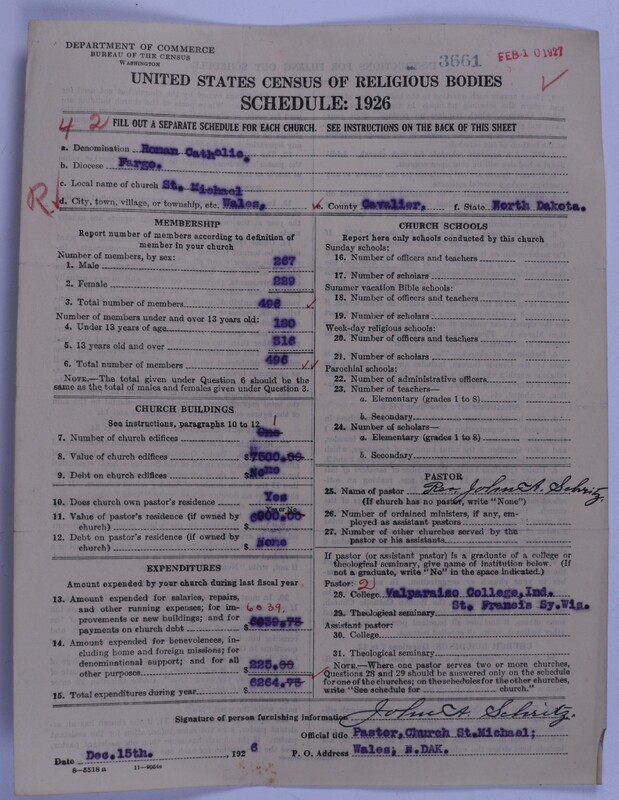 DEPARTMENT OF COMMERCE
BUREAU OF THE CENSUS
WASHINGTON
3661
FEB 10 1927
UNITED STATES CENSUS OF RELIGIOUS BODIES
SCHEDULE: 1926
4 2
FILL OUT A SEPARATE SCHEDULE FOR EACH CHURCH. SEE INSTRUCTIONS ON THE BACK OF THIS SHEET
a. Denomination Roman Catholic.
b. Diocese Fargo.
c. Local name of church St. Michael
R.
d. City, town, village, or township, etc. Wales, e. County Cavalier, f. State North Dakota.
MEMBERSHIP
Report number of members according to definition of
member in your church
Number of members, by sex:
1. Male 267
2. Female 229
3. Total number of members 496
Number of members under and over 13 years old:
4. Under 13 years of age 180
5. 13 years old and over 316
6. Total number of members 496
NOTE.—The total given under Question 6 should be
the same as the total of males and females given under Question 3.
CHURCH BUILDINGS
See instructions, paragraphs 10 to 12
7. Number of church edifices One 1
8. Value of church edifices $7500.00
9. Debt on church edifices $None
10. Does church own pastor's residence Yes
Yes or No
11. Value of pastor's residence (if owned by
church) $6000.00
12. Debt on pastor's residence (if owned by
church) $None
EXPENDITURES
Amount expended by your church during last fiscal year
13. Amount expended for salaries, repairs,
and other running expenses; for im-
provements or new buildings; and for
payments on church debt $6039.75
6039.
14. Amount expended for benevolences, in-
cluding home and foreign missions; for
denominational support; and for all
other purposes $225.00
15. Total expenditures during year $6264.75
CHURCH SCHOOLS
Report here only schools conducted by this church
Sunday schools:
16. Number of officers and teachers
17. Number of scholars
Summer vacation Bible schools:
18. Number of officers and teachers
19. Number of scholars
Week-day religious schools:
20. Number of officers and teachers
21. Number of scholars
Parochial schools:
22. Number of administrative officers
23. Number of teachers—
a. Elementary (grades 1 to 8)
b. Secondary
24. Number of scholars—
a. Elementary (grades 1 to 8)
b. Secondary
PASTOR
25. Name of pastor Rev. John A. Schritz.
(If church has no pastor, write "None")
26. Number of ordained ministers, if any, em-
ployed as assistant pastors
27. Number of other churches served by the
pastor or his assistants
If pastor (or assistant pastor) is a graduate of a college or
theological seminary, give name of institution below. (If
not a graduate, write "No" in the space indicated.)
Pastor: 2
28. College Valparaiso College, Ind.
29. Theological seminary St. Francis Sy. Wis.
Assistant pastor:
30. College
31. Theological seminary
NOTE.—Where one pastor serves two or more churches,
Questions 28 and 29 should be answered only on the schedule
for one of the churches; on the schedules for the other churches,
write "See schedule for church."
Signature of person furnishing information John A. Schritz.
Official title Pastor, Church St. Michael;
Date Dec. 15th. 1926 P. O. Address Wales, N. DAK.
8—5518 a